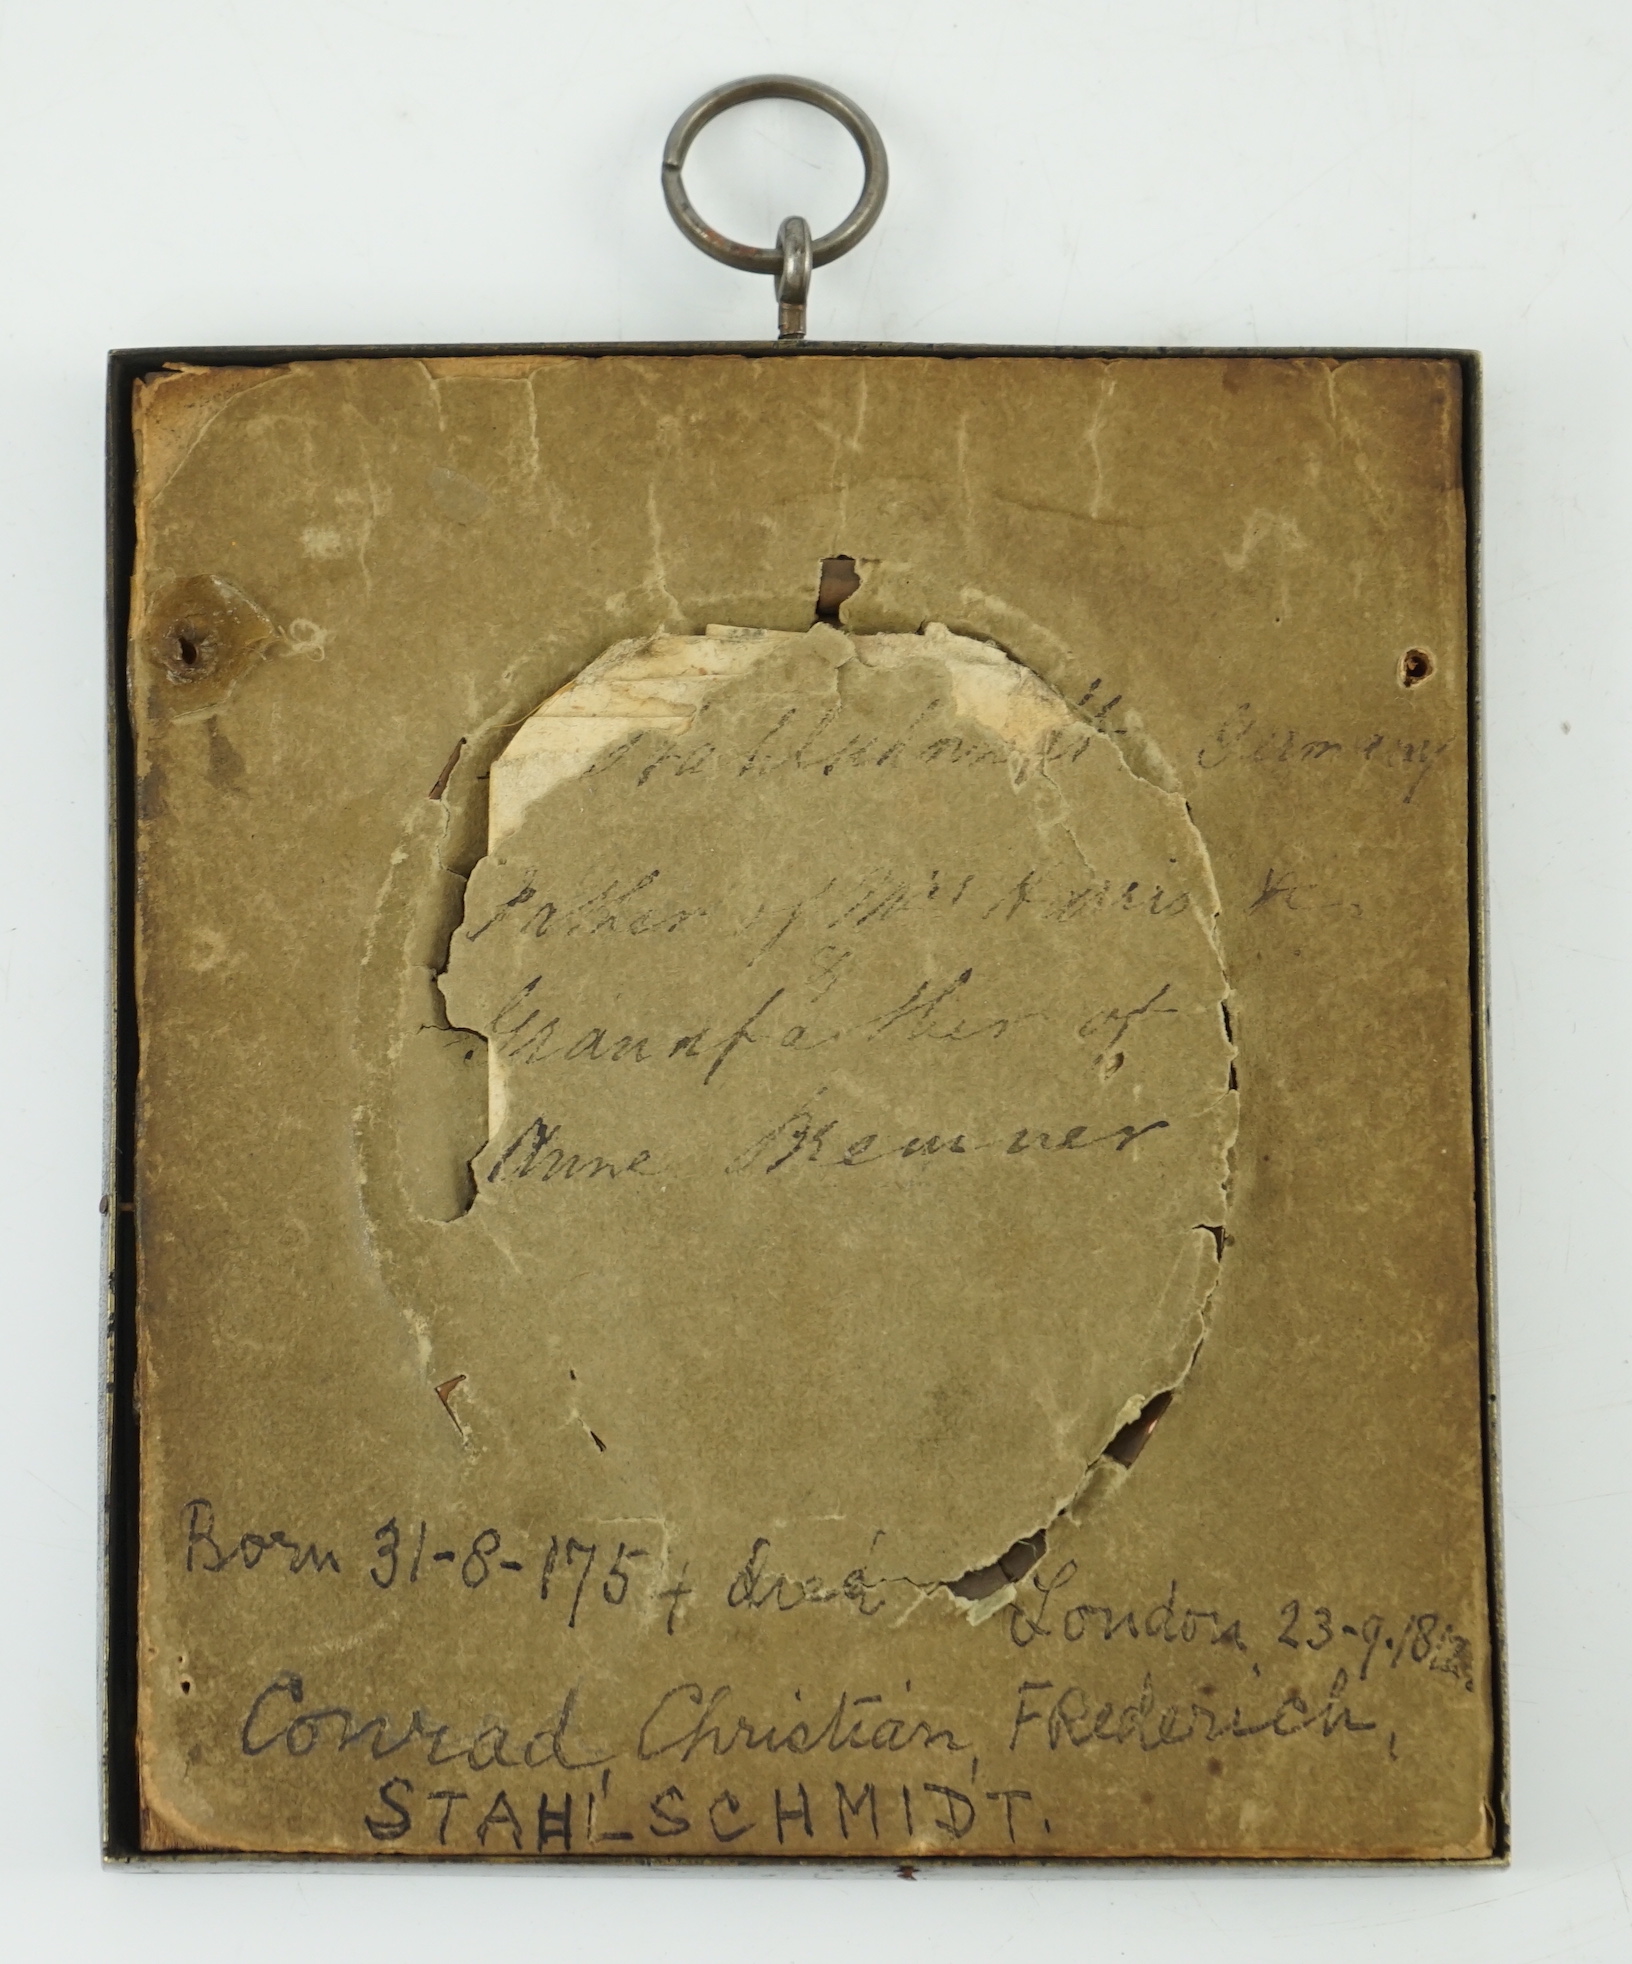 Germany
Father of Mrs Harris &
&
Grannfather of
Anne Bremner
Born 31-8-175 + died London, 23-9-18
Conrad, Christian, FRederich,
STAHLSCHMIDT.